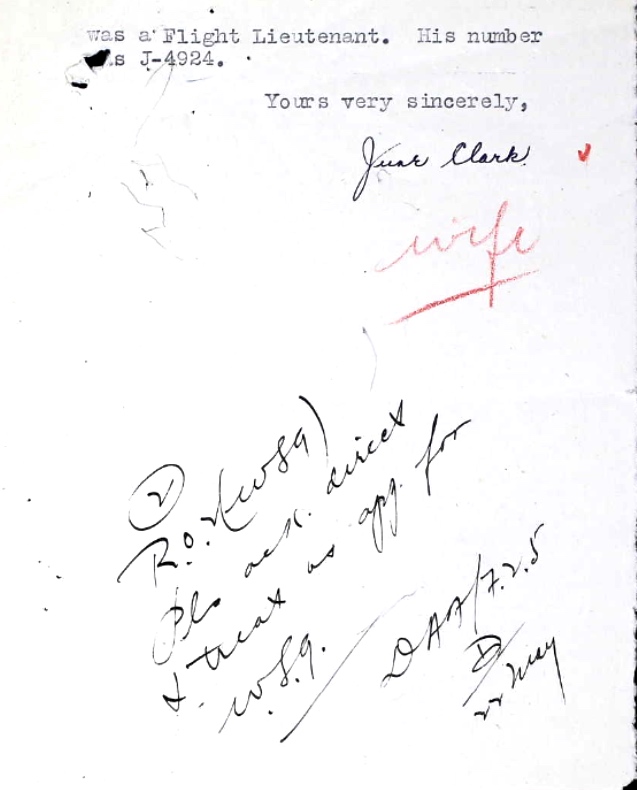 was a Flight Lieutenant. His number
s J-4924.
Yours very sincerely,
June Clark
wife
2
R.O. (WSG)
Pls ack. direct
& treat as app. for
W.S.G.
22 May